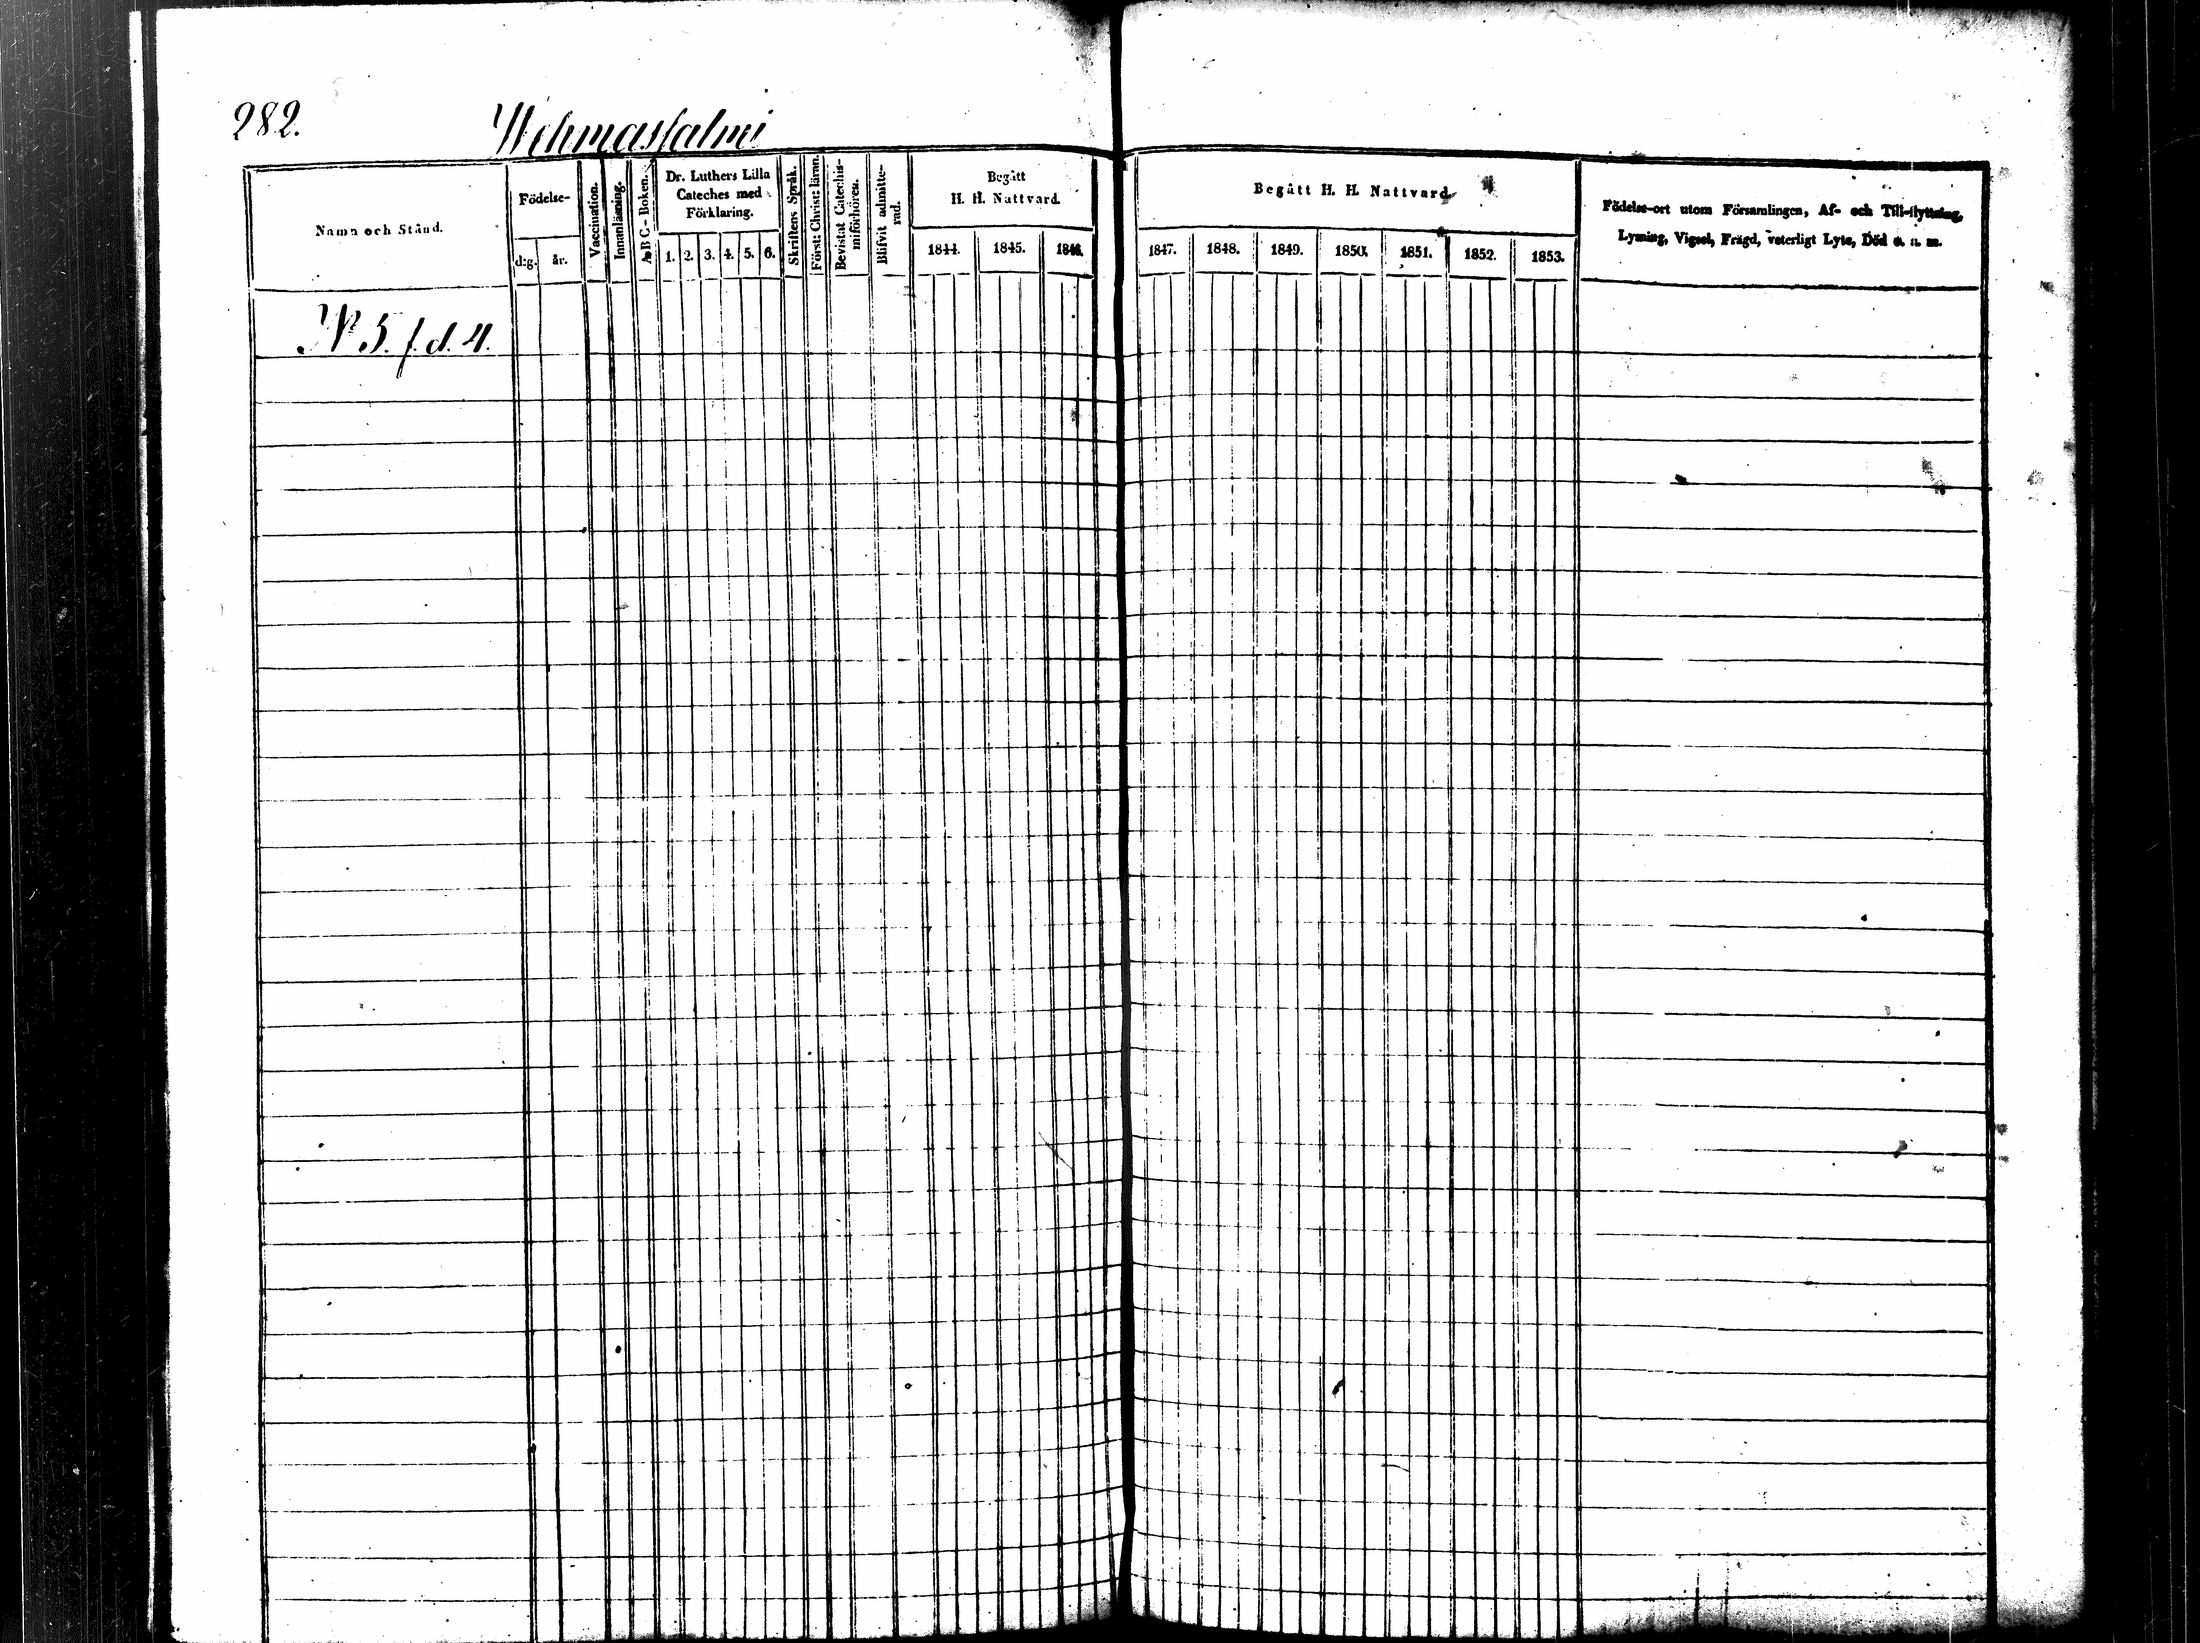 282.
Wehmassalmi
Namn och Stånd.
Födelse-
d:g.
år.
Vaccination.
Innanläsning.
A B C - Boken.
Dr. Luthers Lilla
Cateches med
Förklaring.
1. 2. 3. 4. 5. 6.
Skriftens Språk.
Först: Christ: läran.
Bevistat Catechis-
miförhören.
Blifvit admitte-
rad.
Begått
H. H. Nattvard.
1844. 1845. 1846.
Begått H. H. Nattvard.
1847. 1848. 1849. 1850. 1851. 1852. 1853.
Födelse-ort utom Församlingen, Af- och Till-flyttning,
Lysning, Vigsel, Frägd, veterligt Lyte, Död o. s. m.
Nº 5. f. d. 4.